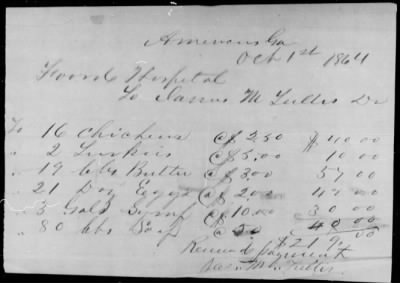 Americus Ga
Oct 1st 1864
Foard Hospital
To James M Tullis Dr
To 16 Chickens @ 2,50 $40 00
" 2 Turkies @ 5,00 10 00
" 19 lbs Butter @ 3,00 57 00
" 21 Doz Eggs @ 2,00 42 00
" 3 Gald Syrup @ 10,00 30 00
" 80 lbs @ 50 40 00
$219 00
Received payment
James M Tullis